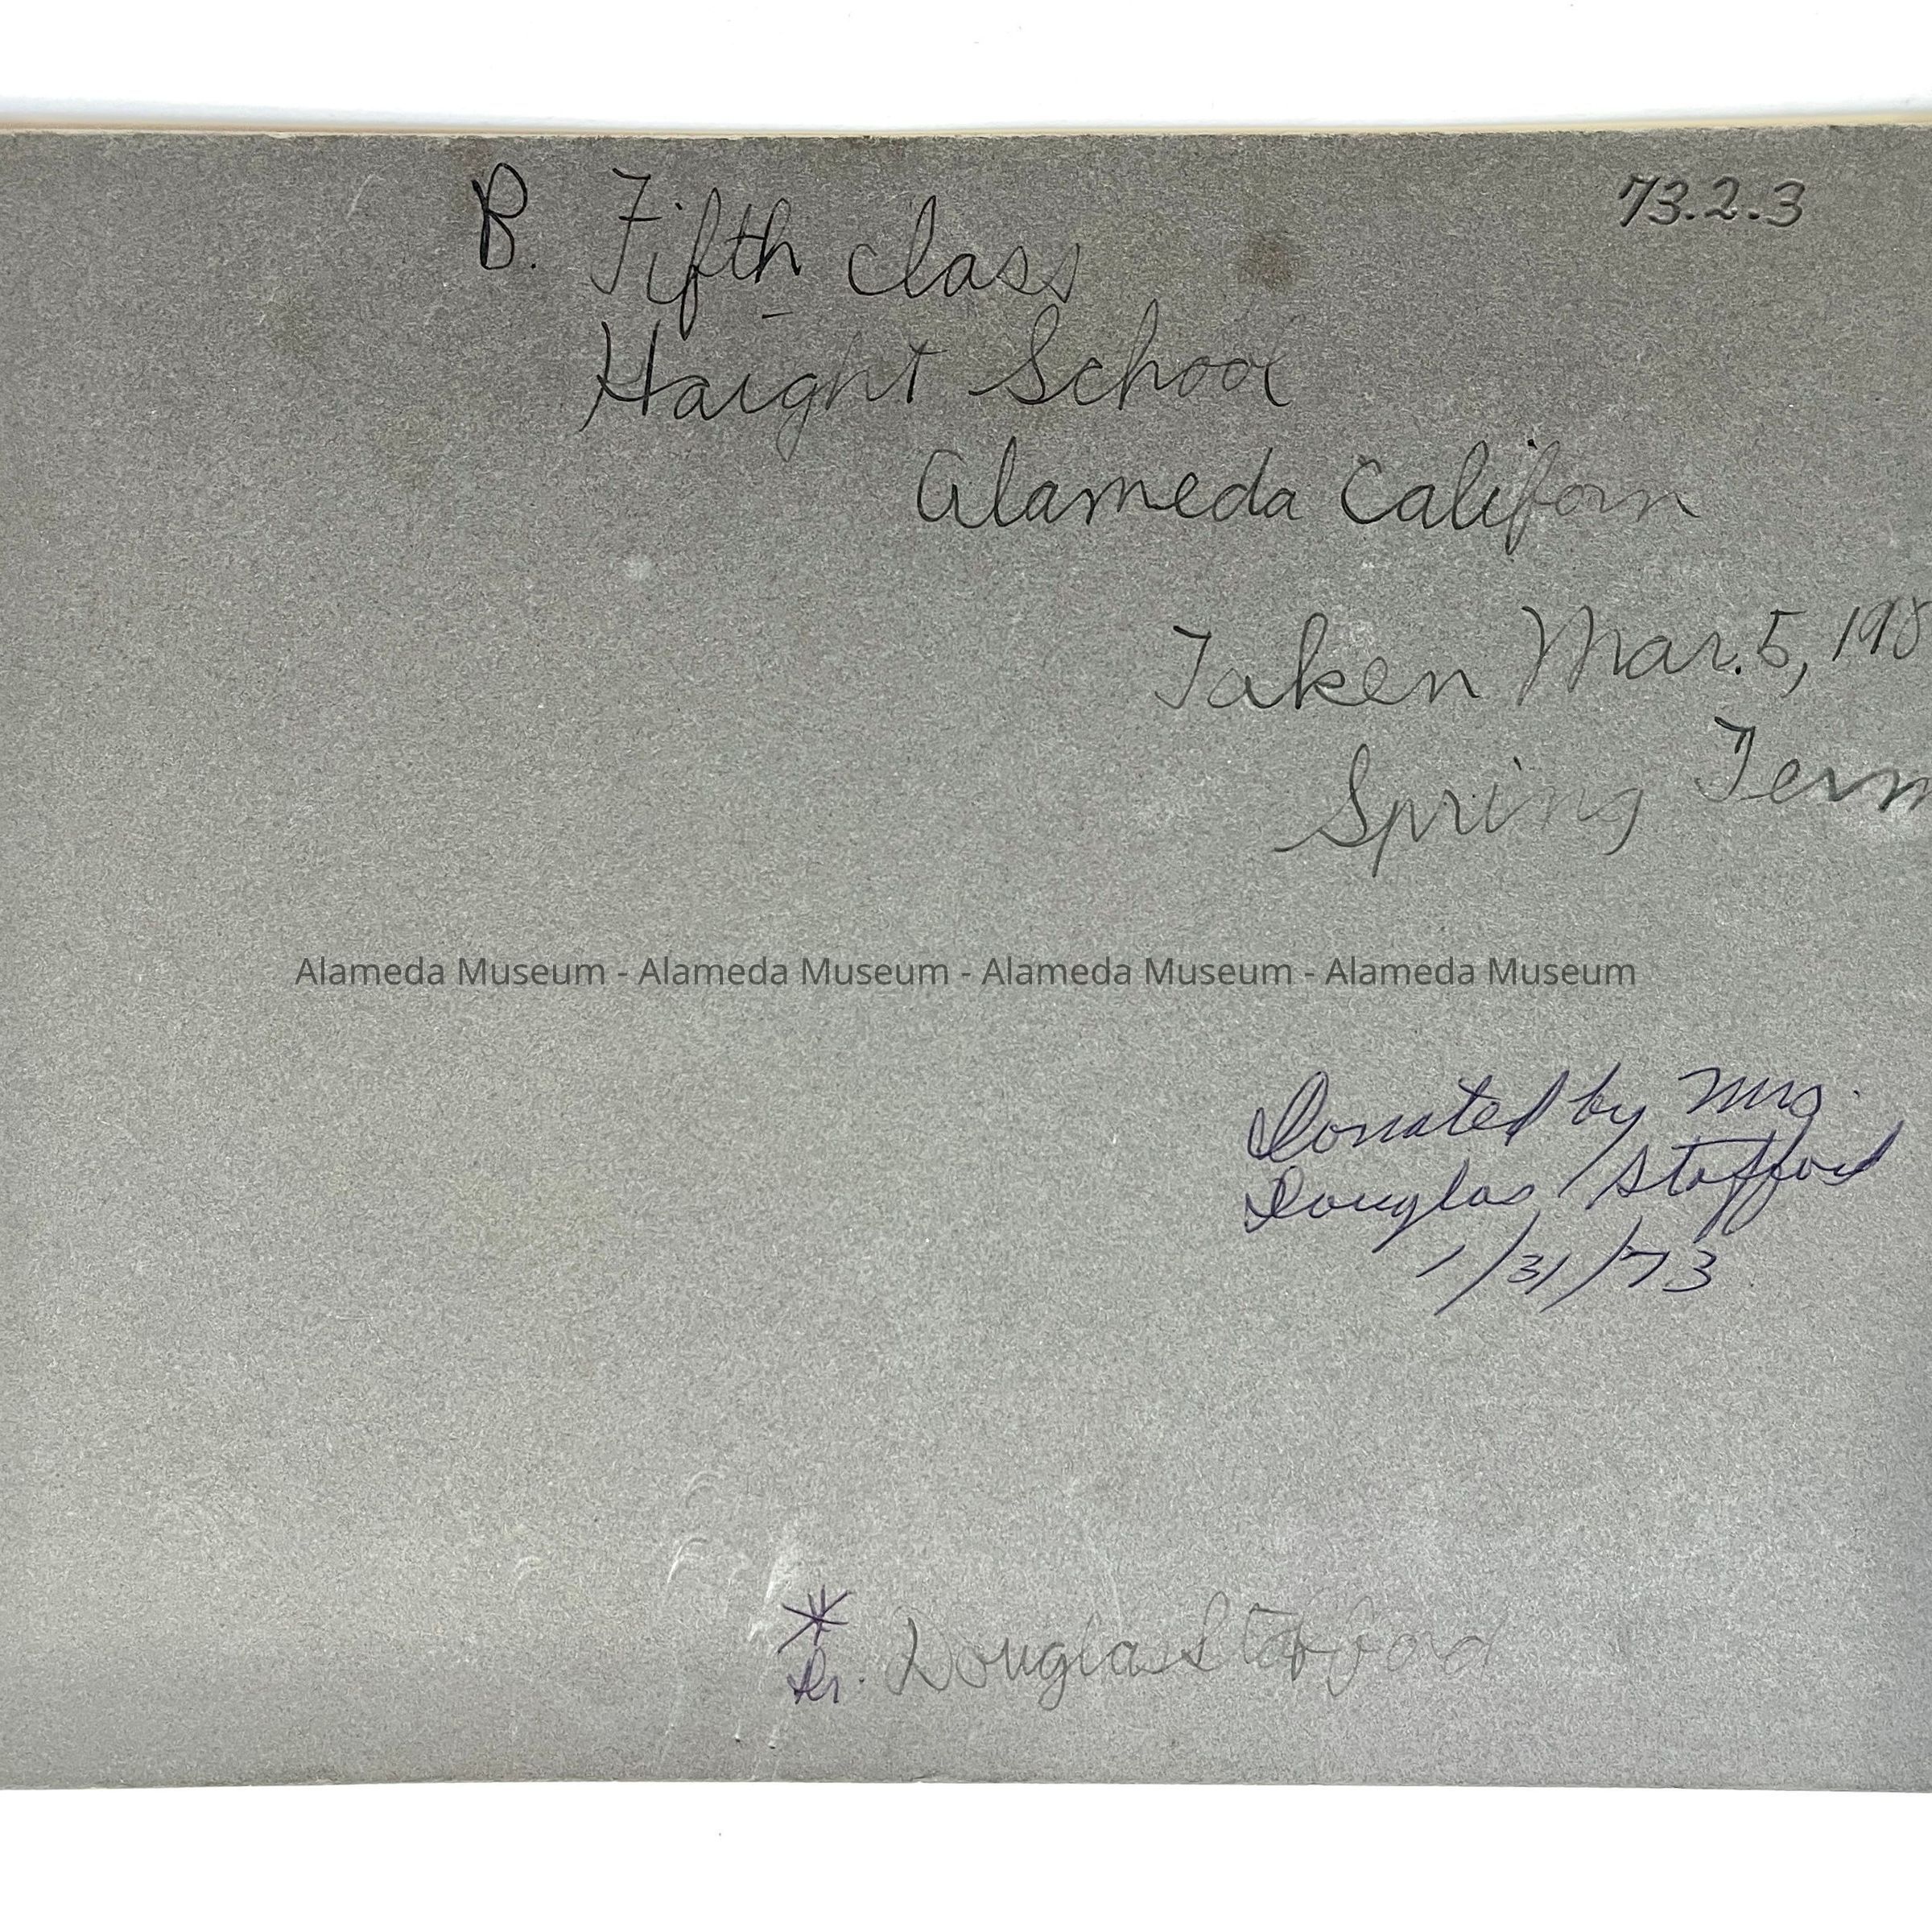 73.2.3
B. Fifth class
Haight School
Alameda Californ
Taken Mar. 5, 198
Spring Term
Alameda Museum - Alameda Museum - Alameda Museum - Alameda Museum
Donated by Mrs.
Douglas Stafford
1/31/73
*
Dr. Douglas Stafford